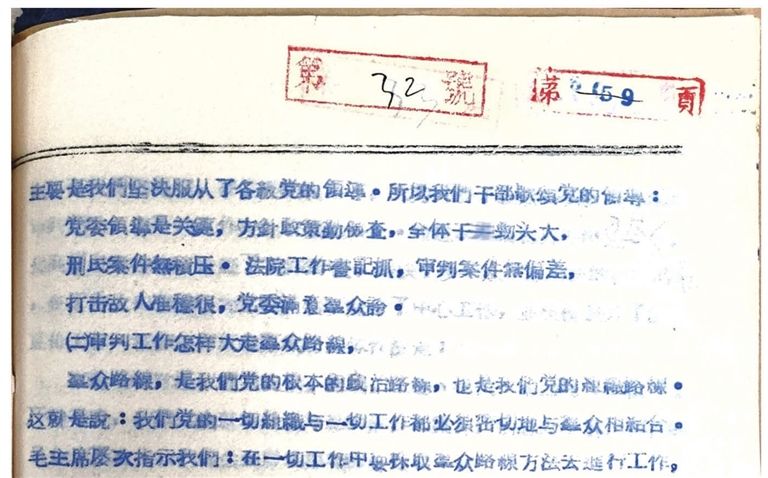 第 32 號
第 159 頁
主要是我們坚决服从了各級党的領導。所以我們干部歌頌党的領導：
党委領導是关鍵，方針政策勤檢查，全体干勁头大，
刑民案件無積压。法院工作書記抓，审判案件無偏差，
打击敌人准穩很，党委滿意羣众誇。
㈡审判工作怎样大走羣众路線，
羣众路線，是我們党的根本的政治路線，也是我們党的組織路線。
这就是説：我們党的一切組織与一切工作都必須密切地与羣众相結合。
毛主席屡次指示我們：在一切工作中要採取羣众路線方法去進行工作，